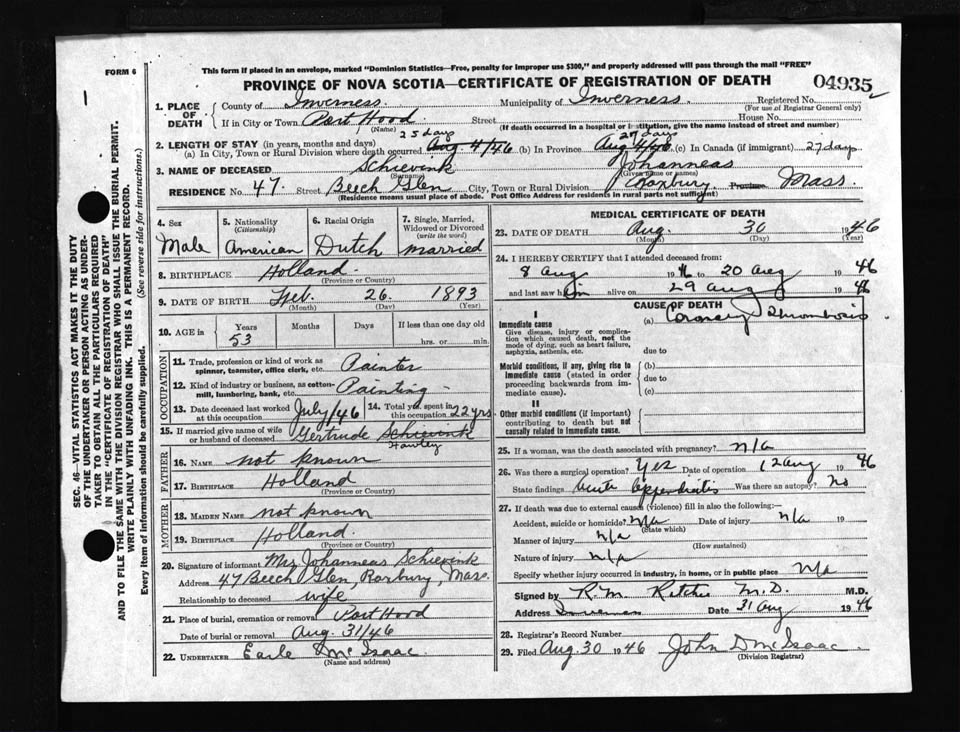 FORM 6
This form if placed in an envelope, marked "Dominion Statistics—Free, penalty for improper use $300," and properly addressed will pass through the mail "FREE"
PROVINCE OF NOVA SCOTIA—CERTIFICATE OF REGISTRATION OF DEATH
04935
1
1. PLACE OF DEATH
County of Inverness. Municipality of Inverness. Registered No.
(For use of Registrar General only)
If in City or Town Port Hood Street House No.
(Name) (If death occurred in a hospital or institution, give the name instead of street and number)
25 days 27 days
2. LENGTH OF STAY (in years, months and days)
(a) In City, Town or Rural Division where death occurred Aug 4/46 (b) In Province Aug 4/46 (c) In Canada (if immigrant) 27 days
3. NAME OF DECEASED Schievink Johanneas
(Surname) (Given name or names)
RESIDENCE No. 47. Street Beech Glen City, Town or Rural Division Roxbury. Province Mass.
(Residence means usual place of abode. Post Office Address for residents in rural parts not sufficient)
4. Sex
Male
5. Nationality (Citizenship)
American
6. Racial Origin
Dutch
7. Single, Married, Widowed or Divorced (write the word)
married
8. BIRTHPLACE Holland
(Province or Country)
9. DATE OF BIRTH Feb. 26. 1893
(Month) (Day) (Year)
10. AGE in Years Months Days If less than one day old
53 hrs. or min.
OCCUPATION
11. Trade, profession or kind of work as spinner, teamster, office clerk, etc. Painter
12. Kind of industry or business, as cotton-mill, lumbering, bank, etc. Painting
13. Date deceased last worked at this occupation July/46
14. Total yrs. spent in this occupation 22 yrs
15. If married give name of wife or husband of deceased Gertrude Schievink
Hawley
FATHER
16. NAME not known
17. BIRTHPLACE Holland
(Province or Country)
MOTHER
18. MAIDEN NAME not known
19. BIRTHPLACE Holland.
(Province or Country)
20. Signature of informant Mrs Johanneas Schievink
Address 47 Beech Glen, Roxbury, Mass.
Relationship to deceased wife
21. Place of burial, cremation or removal Port Hood
Date of burial or removal Aug. 31/46
22. UNDERTAKER Earle McIsaac.
(Name and address)
MEDICAL CERTIFICATE OF DEATH
23. DATE OF DEATH Aug. 30 1946
(Month) (Day) (Year)
24. I HEREBY CERTIFY that I attended deceased from:
8 Aug 1946 to 20 Aug 1946
and last saw him alive on 29 Aug 1946
CAUSE OF DEATH
I
Immediate cause (a) Coronary Thrombosis
Give disease, injury or complication which caused death, not the mode of dying, such as heart failure, asphyxia, asthenia, etc.
due to
Morbid conditions, if any, giving rise to immediate cause (stated in order proceeding backwards from immediate cause).
(b)
due to
(c)
II
Other morbid conditions (if important) contributing to death but not causally related to immediate cause.
25. If a woman, was the death associated with pregnancy? N/A
26. Was there a surgical operation? Yes Date of operation 12 Aug 1946
State findings Acute Appendicitis Was there an autopsy? No
27. If death was due to external causes (violence) fill in also the following:—
Accident, suicide or homicide? N/a Date of injury N/a 19
(State which)
Manner of injury N/a
(How sustained)
Nature of injury N/a
Specify whether injury occurred in industry, in home, or in public place N/a
Signed by R. M. Ritchie M.D. M.D.
Address Inverness Date 31 Aug 1946
28. Registrar's Record Number
29. Filed Aug. 30 1946 John D McIsaac.
(Division Registrar)
SEC. 46—VITAL STATISTICS ACT MAKES IT THE DUTY
OF THE UNDERTAKER OR PERSON ACTING AS UNDER-
TAKER TO OBTAIN ALL THE PARTICULARS REQUIRED
IN THE "CERTIFICATE OF REGISTRATION OF DEATH"
AND TO FILE THE SAME WITH THE DIVISION REGISTRAR WHO SHALL ISSUE THE BURIAL PERMIT.
WRITE PLAINLY WITH UNFADING INK. THIS IS A PERMANENT RECORD.
Every item of information should be carefully supplied. (See reverse side for instructions.)